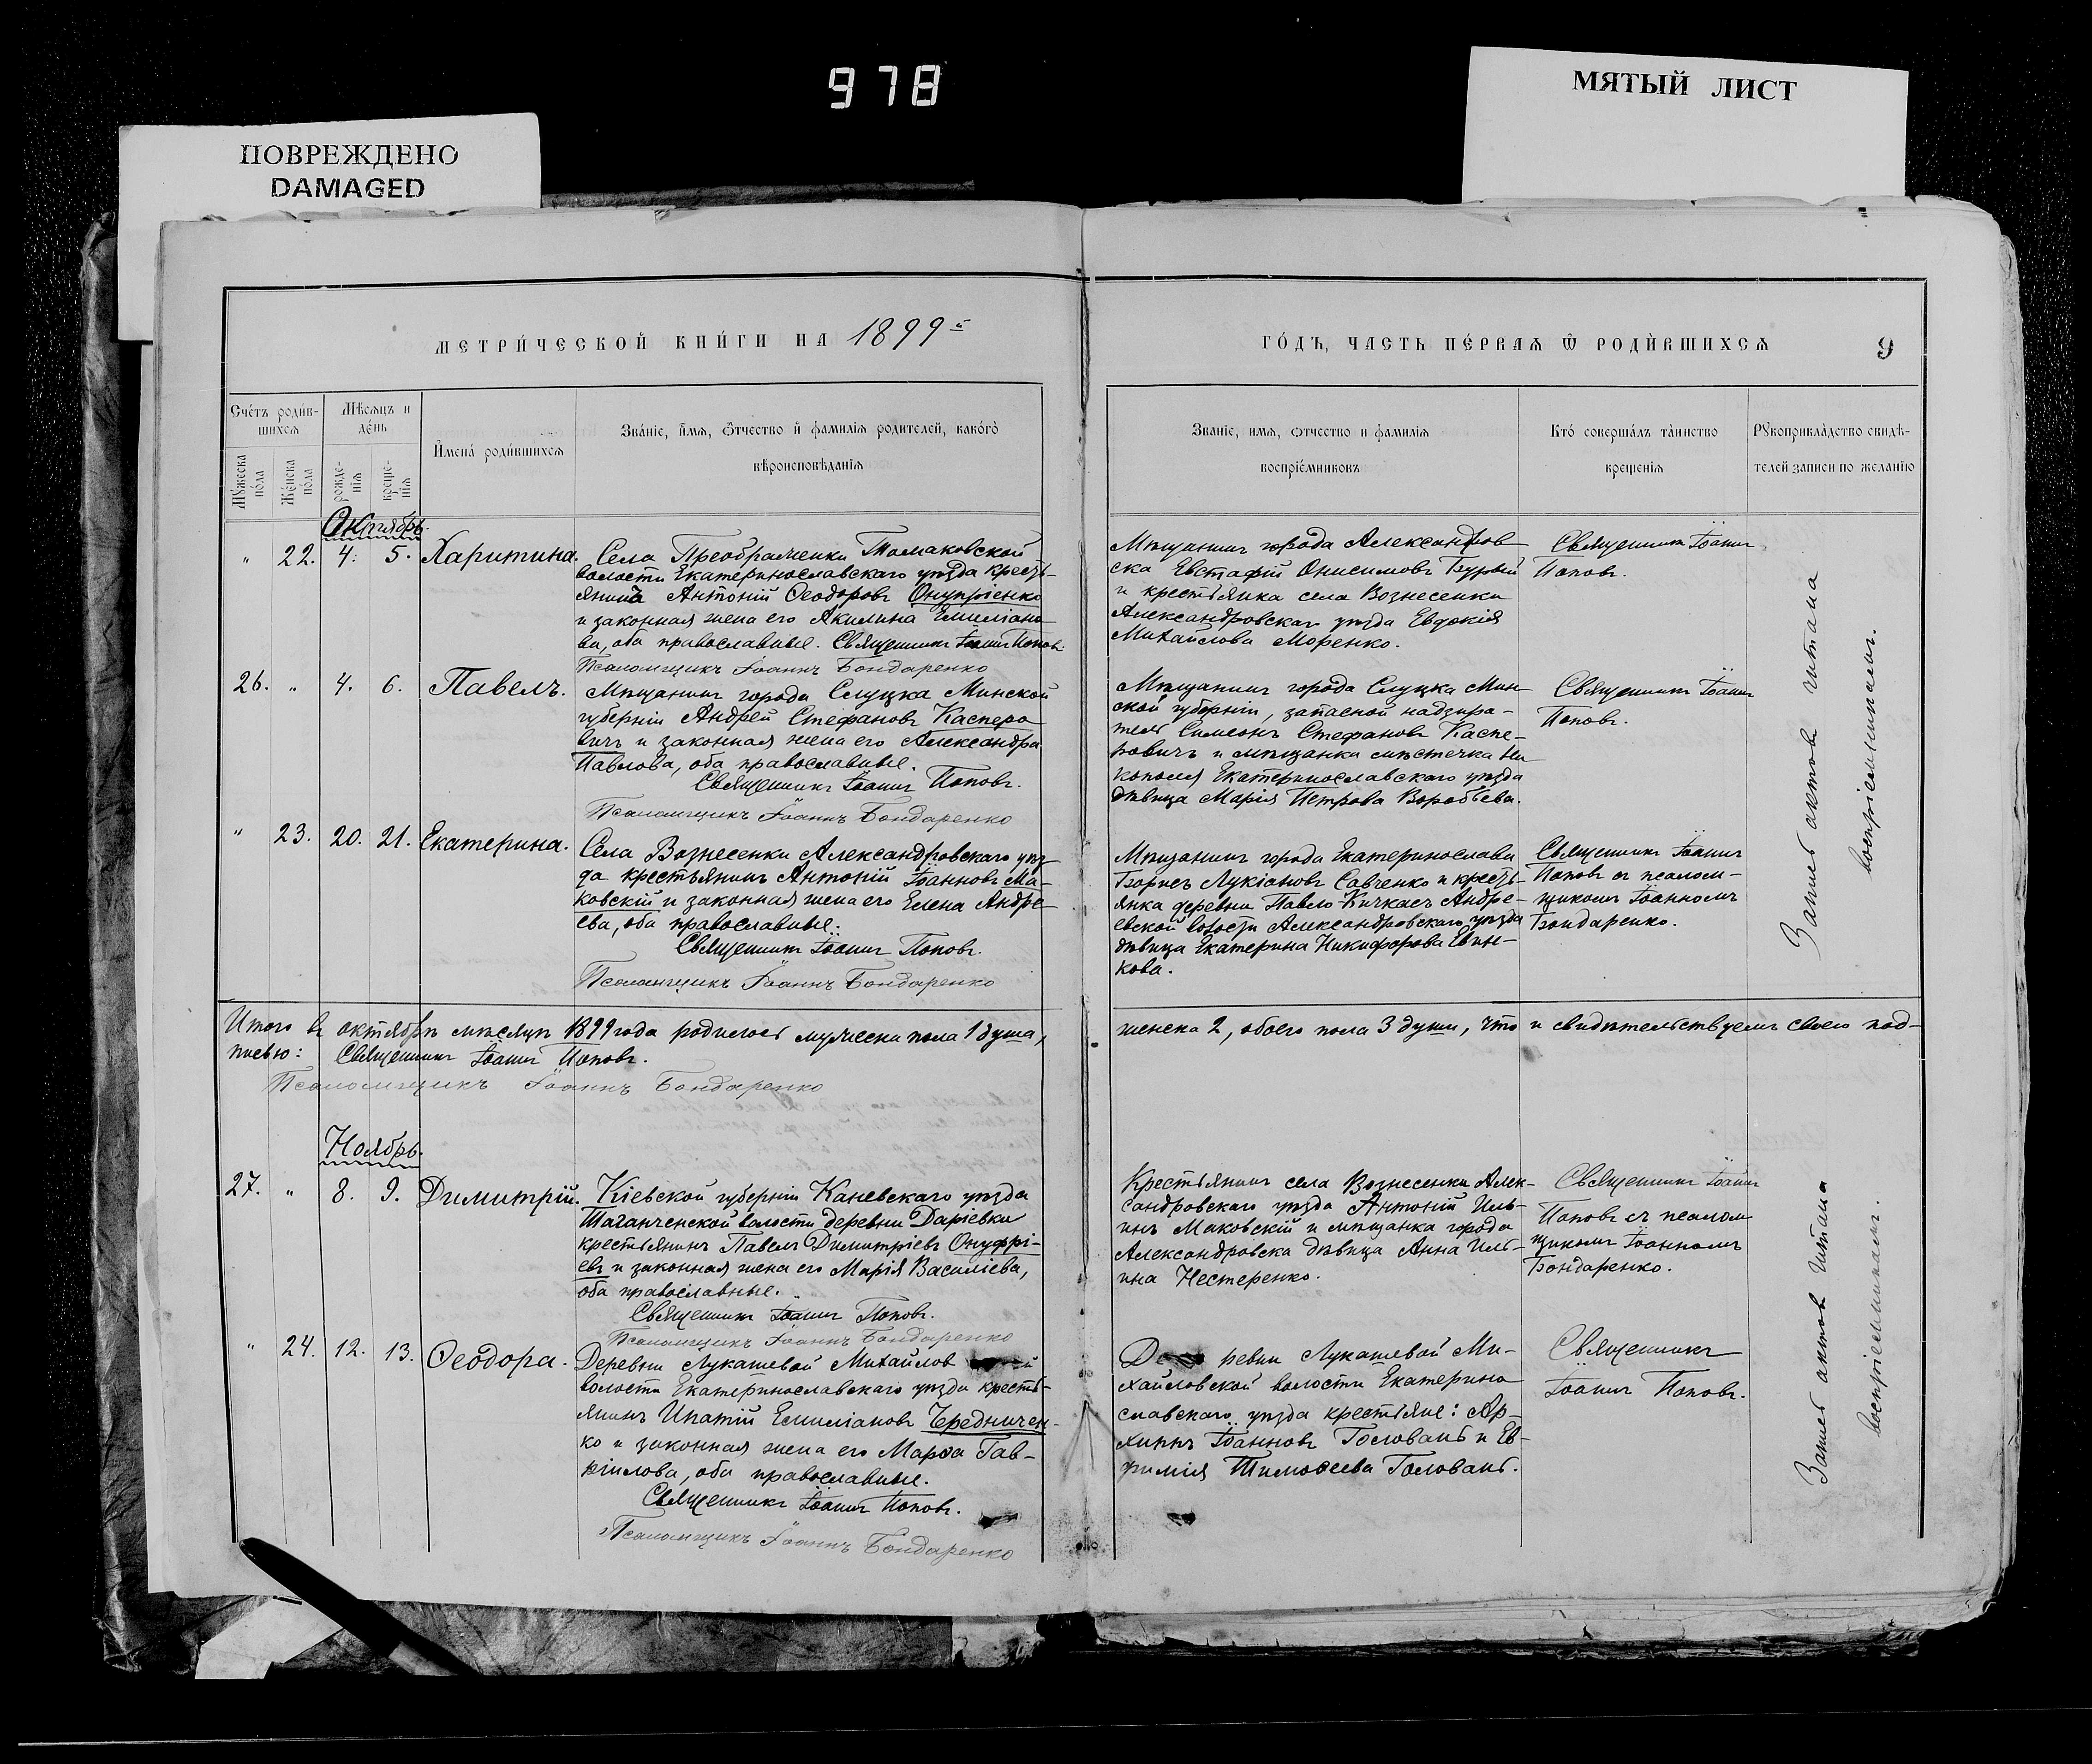 978
МЯТЫЙ ЛИСТ
ПОВРЕЖДЕНО
DAMAGED
МЕТРИ́ЧЕСКОЙ КНИ́ГИ НА 1899й
ГО́ДЪ, ЧАСТЬ ПЕ́РВАѦ Ѿ РОДИ́ВШИХСѦ
9
Сче́тъ роди́в-
шихсѧ
Мѣ́сѧцъ и
де́нь
Мꙋжеска
по́ла
Же́нска
по́ла
рожде-
нїѧ
креще-
нїѧ
Имена́ роди́вшихсѧ
Зва́нїе, и́мѧ, ѻ҆тчество и҆ фами́лїѧ родителей, како́гѡ
вѣроисповѣ́данїѧ
Званїе, имѧ, ѻтчество и фамилїѧ
воспрїе́мниковъ
Кто́ соверша́лъ та́инство
креще́нїѧ
Рꙋкоприкла́дство свидѣ́-
телей записи по жела́нїю
Октябрь.
" 22. 4. 5. Харитина.
Села Преображенки Томаковской
волости Екатеринославскаго уѣзда кресть-
янинъ Антоній Ѳеодоровъ Онуприенко
и законная жена его Акилина Емиліано
ва, оба православные. Священникъ Іоаннъ Поповъ.
Псаломщикъ Іоаннъ Бондаренко
Мѣщанинъ города Александров
ска Евстафій Онисимовъ Бурый
и крестьянка села Вознесенки
Александровскаг уѣзда Евдокія
Михайлова Моренко.
Священникъ Іоаннъ
Поповъ.
26. " 4. 6. Павелъ.
Мѣщанинъ города Слуцка Минской
губерніи Андрей Стефановъ Каспера
вичъ и законная жена его Александра
Павлова, оба православные.
Священникъ Іоаннъ Поповъ.
Псаломщикъ Іоаннъ Бондаренко
Мѣщанинъ города Слуцка Мин
ской губерніи, запасной надзира-
тель Симеонъ Стефановъ Каспе-
ровичъ и мѣщанка мѣстечка Ни
кополя Екатеринославскаго уѣзда
дѣвица Марія Петрова Воробьева.
Священникъ Іоаннъ
Поповъ.
" 23. 20. 21. Екатерина.
Села Вознесенки Александровскаго уѣз
да крестьянинъ Антоній Іоанновъ Ма-
ковскій и законная жена его Елена Андре-
ева, оба православные.
Священникъ Іоаннъ Поповъ.
Псаломщикъ Іоаннъ Бондаренко
Мѣщанинъ города Екатеринослава
Борисъ Лукіановъ Савченко и кресть-
янка деревни Павло-Кичкасъ Андре-
евской волости Александровскаго уѣзда
дѣвица Екатерина Никифорова Евин-
кова.
Священникъ Іоаннъ
Поповъ съ псалом-
щикомъ Іоанномъ
Бондаренко.
Запись актовъ читана
воспріемникамъ.
Итого въ октябрѣ мѣсяцѣ 1899 года родилось мужеска пола 1 душа,
женска 2, обоего пола 3 души, что и свидѣтельствуемъ своею под-
писью: Священникъ Іоаннъ Поповъ.
Псаломщикъ Іоаннъ Бондаренко
Ноябрь.
27. " 8. 9. Димитрій.
Кіевской губерніи Каневскаго уѣзда
Таганченской волости деревни Даріевки
крестьянинъ Павелъ Димитріевъ Онуфрі-
евъ и законная жена его Марія Василіева,
оба православные.
Священникъ Іоаннъ Поповъ.
Псаломщикъ Іоаннъ Бондаренко
Крестьянинъ села Вознесенки Алек-
сандровскаго уѣзда Антоній Иль-
инъ Маковскій и мѣщанка города
Александровска дѣвица Анна Иль-
ина Нестеренко.
Священникъ Іоаннъ
Поповъ съ псалом
щикомъ Іоанномъ
Бондаренко.
" 24. 12. 13. Ѳеодора.
Деревни Лукашевой Михайлов й
волости Екатеринославскаго уѣзда кресть-
янинъ Ипатій Емиліановъ Чередничен-
ко и законная жена его Марѳа Гав-
ріилова, оба православные.
Священникъ Іоаннъ Поповъ.
Псаломщикъ Іоаннъ Бондаренко
Де ревни Лукашевой Ми-
хайловской волости Екатерино
славскаго уѣзда крестьяне: Ар-
хиппъ Іоанновъ Головань и Ев-
фимія Тимоѳеева Головань.
Священникъ
Іоаннъ Поповъ.
Запись актовъ читана
воспріемникамъ.